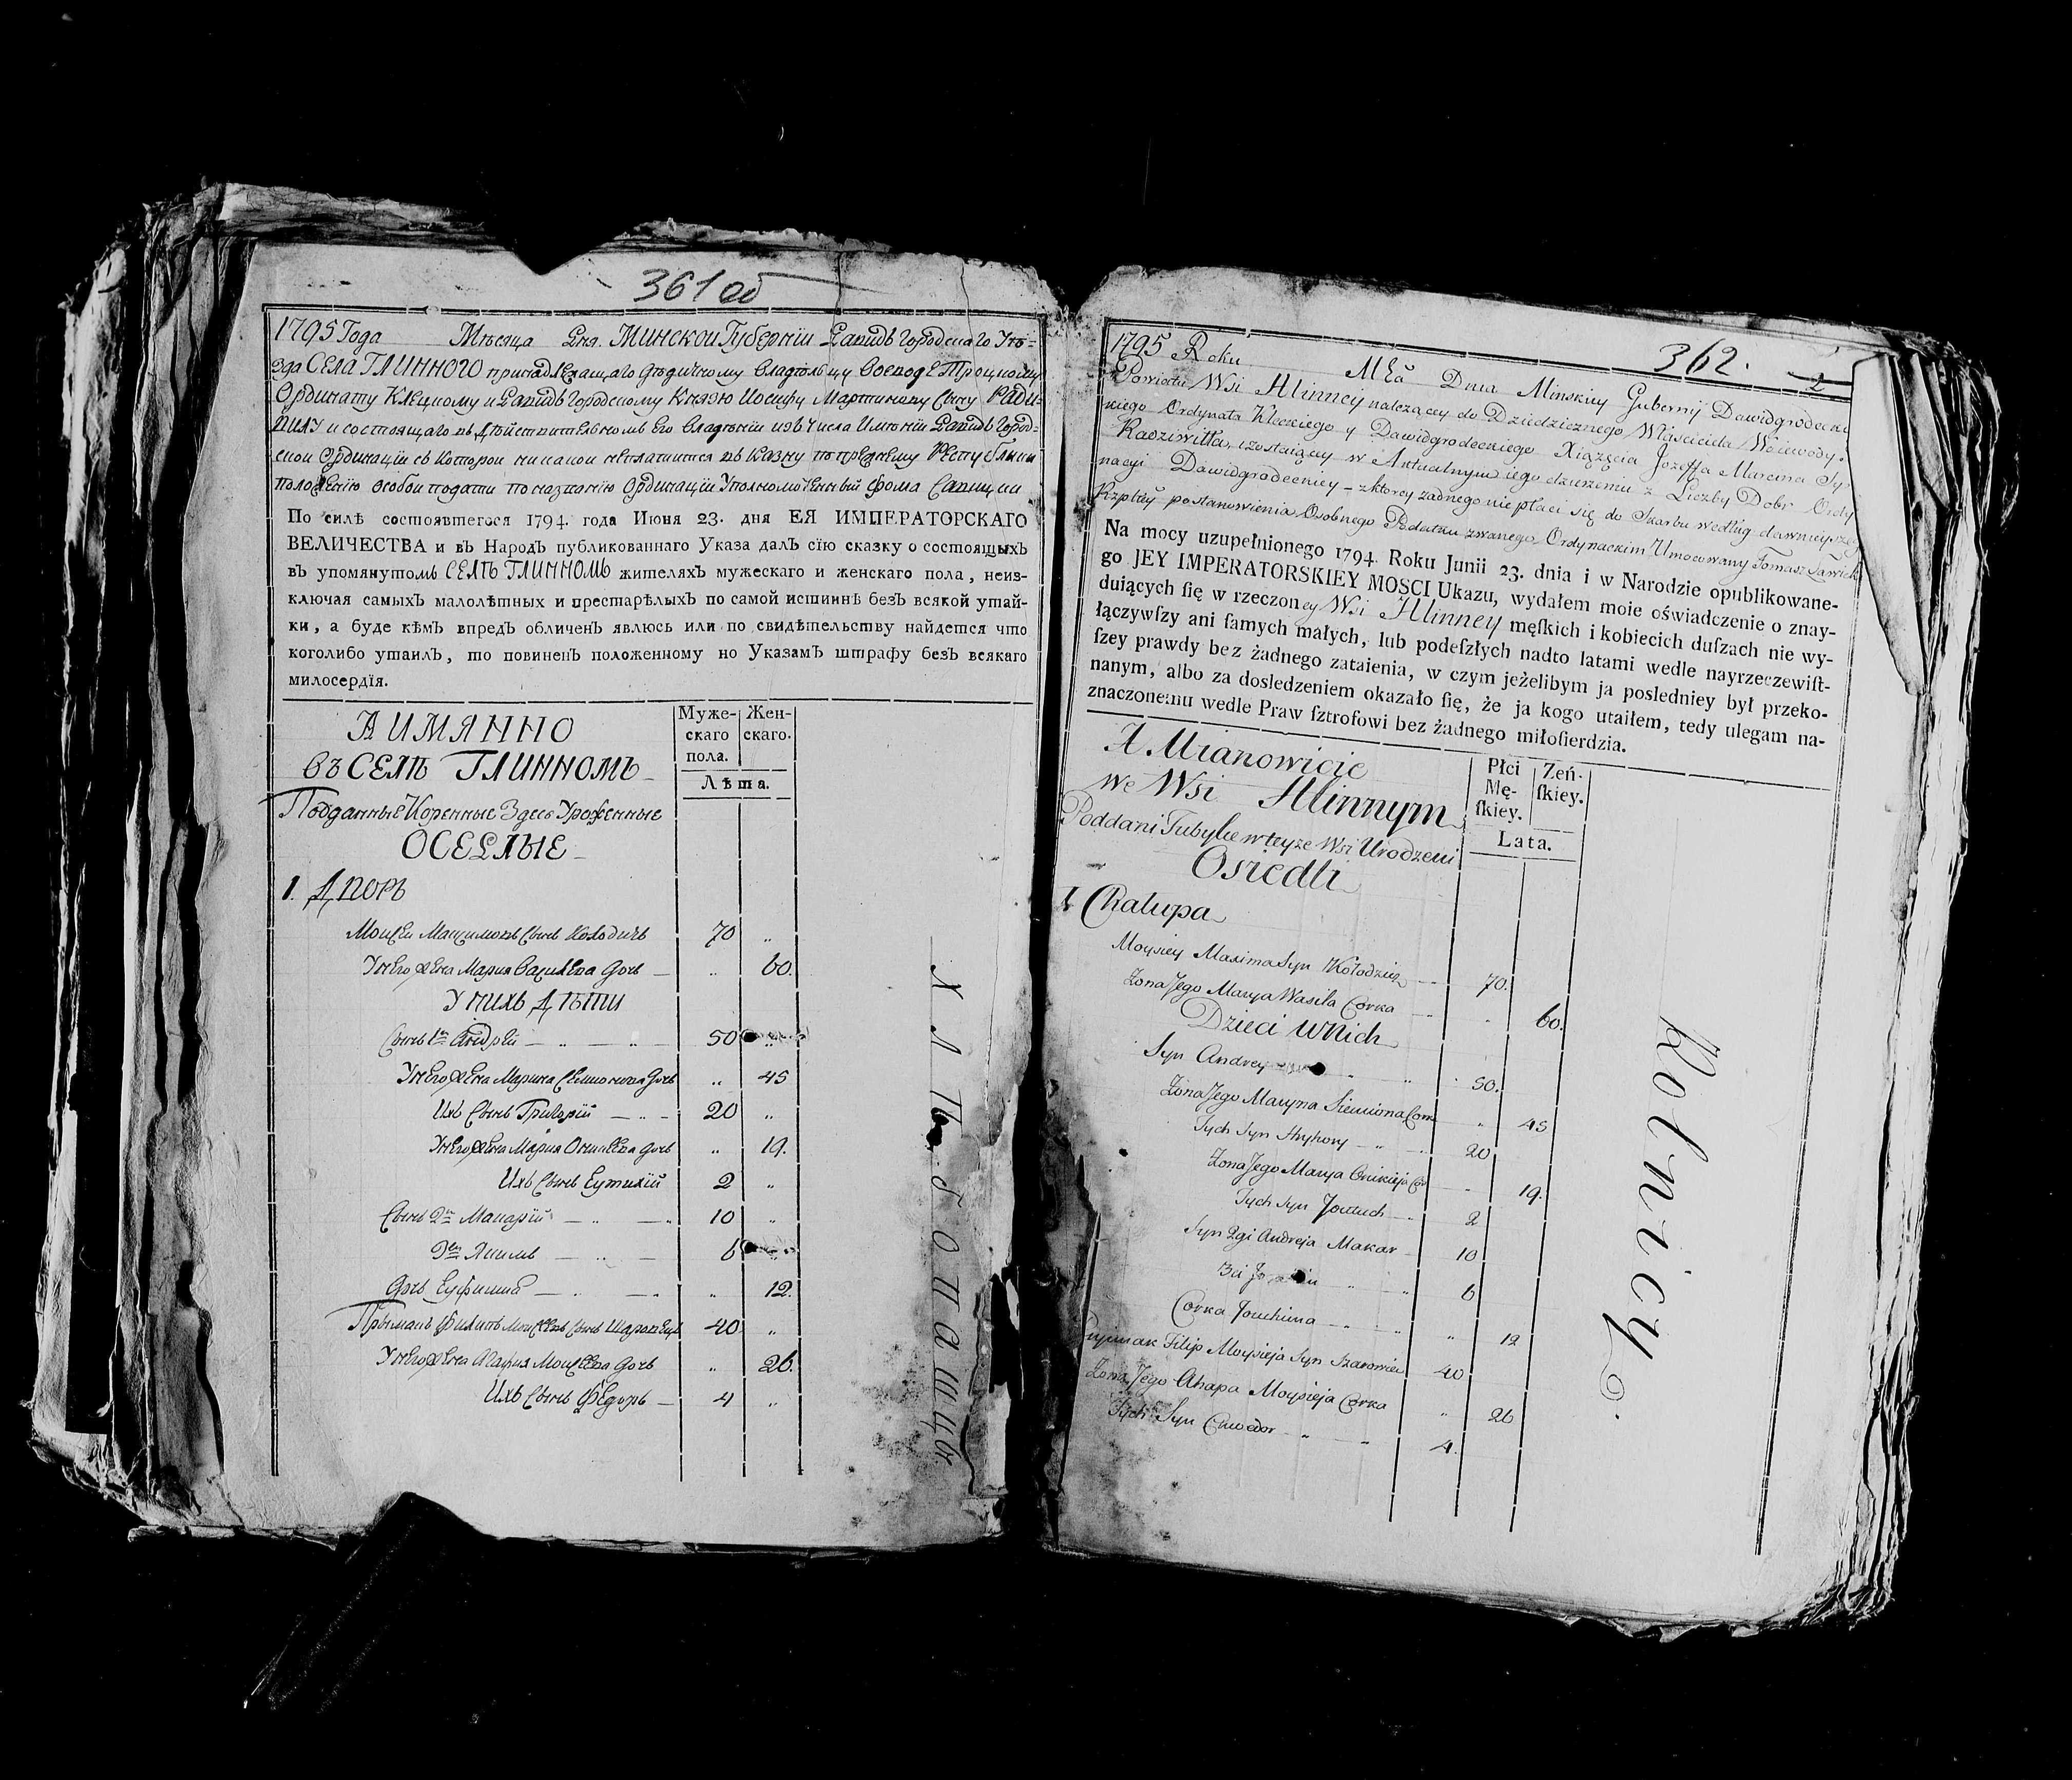 361 об
1795 Года Мѣсяца Дня. Минской Губернїи Давидъ Городскаго Уѣ=
зда СЕЛА ГЛИННОГО принадлежащаго Дѣдичному Владѣльцу Воеводе Троцкому
Ординату Клецкому и Давидъ Городскому Князю Иосифу Мартинову Сыну Ради=
вилу и состоящаго въ Дѣйствительномъ Его Владѣнїи изъ Числа Имѣнїи Давидъ Город=
скои Ординацїи съ Которои никакои неплатится въ Казну по прежнему Республики
положенїю особои подати по названїю Ординацїи Уполномоченный Фома Савицки
По силѣ состоявшегося 1794. года Июня 23. дня ЕЯ ИМПЕРАТОРСКАГО
ВЕЛИЧЕСТВА и въ Народъ публикованнаго Указа далъ сїю сказку о состоящыхъ
въ упомянутомъ СЕЛѢ ГЛИННОМЪ жителяхъ мужескаго и женскаго пола, неиз-
ключая самыхъ малолѣтныхъ и престарѣлыхъ по самой истиннѣ безъ всякой утай-
ки, а буде кѣмъ впредъ обличенъ явлюсь или по свидѣтельству найдется что
коголибо утаилъ, то повиненъ положенному но Указамъ штрафу безъ всякаго
милосердїя.
А ИМЯННО
въ СЕЛѢ ГЛИННОМЪ
Муже-
скаго
пола.
Жен-
скаго.
Лѣта.
Подданные Коренные Здесь Уроженные
ОСЕДЛЫЕ
1. ДВОРЪ
Моисеи Максимовъ Сынъ Колодичъ 70 „
У Него жена Мария Василева Дочь — „ 60.
У НИХЪ ДѢТИ
Сынъ 1й Андрей — „ — „ — 50 „
У Него жена Марина Семионова Дочь „ 45
Ихъ Сынъ Григорїй — „ — 20 „
У Него жена Мария Оникеева Дочь „ 19.
Ихъ Сынъ Еутихїй 2 „
Сынъ 2й Макарїй — „ — „ 10 „
3й Якимъ — „ — 6 „
Дочь Еуфимия — „ — „ „ 12.
Прымакъ Филипъ Моисеевъ Сынъ Шаровецъ 40 „
У Него жена Агафия Моисеева Дочь „ 26.
Ихъ Сынъ Федоръ — 4 „
ХЛѢбопашцы.
362. 2
1795 Roku Mca Dnia Minskiey Gubernij Dawidgrodeckie
Powiatu Wsi Hlinney należącey do Dziedzicznego Właściciela Woiewody
Ordynata Kleckiego y Dawidgrodeckiego Xiązęcia Jozefa Marcina Sy
Radziwiłła, zostaiącey w Aktualnym iego dzierzeniu z Liczby Dobr Ordy
nacyi Dawidgrodeckiey – z ktorey żadnego niepłaci się do Skarbu według dawnieyszego
Rzpltey postanowienia Osobnego Podatku zwanego Ordynackim Umocowany Tomasz Sawicki
Na mocy uzupełnionego 1794. Roku Junii 23. dnia i w Narodzie opublikowane-
go JEY IMPERATORSKIEY MOSCI Ukazu, wydałem moie oświadczenie o znay-
duiących ſię w rzeczoney Wsi Hlinney męſkich i kobiecich duſzach nie wy-
łączywſzy ani ſamych małych, lub podeſzłych nadto latami wedle nayrzeczewiſt-
ſzey prawdy bez żadnego zataienia, w czym jeżelibym ja posledniey był przeko-
nanym, albo za dosledzeniem okazało ſię, że ja kogo utaiłem, tedy ulegam na-
znaczonemu wedle Praw ſztrofowi bez żadnego miłoſierdzia.
A Mianowicie
we Wsi Hlinnym
Płci
Mę-
ſkiey.
Zeń-
ſkiey.
Lata.
Poddani Tubylce w teyże Wsi Urodzeni
Osiedli
1 Chalupa
Moysiey Maxima Syn Kołodzicz — 70.
Zona Jego Marya Wasila Corka — „ 60.
Dzieci u Nich
Syn Andrey „ „ 50.
Zona Jego Maryna Siemiona Cor „ 45
Tych Syn Hryhory — „ 20
Zona Jego Marya Onikieja Cor „ 19.
Tych Syn Jowtuch „ 2
Syn 2gi Andreja Makar — 10
3ci „ „ 6
Corka Jouchima „ „ 12
Prymak Filip Moysieja Syn Szarowiec 40
Zona Jego Ahapa Moysieja Corka „ 26
Tych Syn Chwedor „ — 4.
Rolnicy.